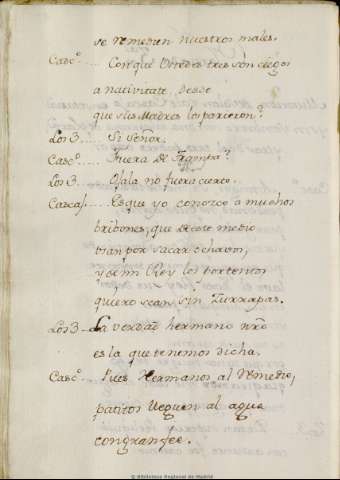 se remedien nuestros males.
Casc°.... Conque Ustedes tres son ciegos
a nativitate, desde
que sus Madres los parieron?
Los 3..... Si señor.
Casc°..... Fuera de Trampa?
Los 3.... Ojala no fuera cierto.
Cascaj.... Es que yo conozco a muchos
bribones, que de este medio
usan por sacar ochavos,
y en mi Rey los portentos
quiero sean sin Zurrapas.
Los 3... La verdad hermano nro
es la que tenemos dicha.
Casc°... Pues Hermanos al remedio,
patitos lleguen al agua
con gran fee.
© Biblioteca Regional de Madrid